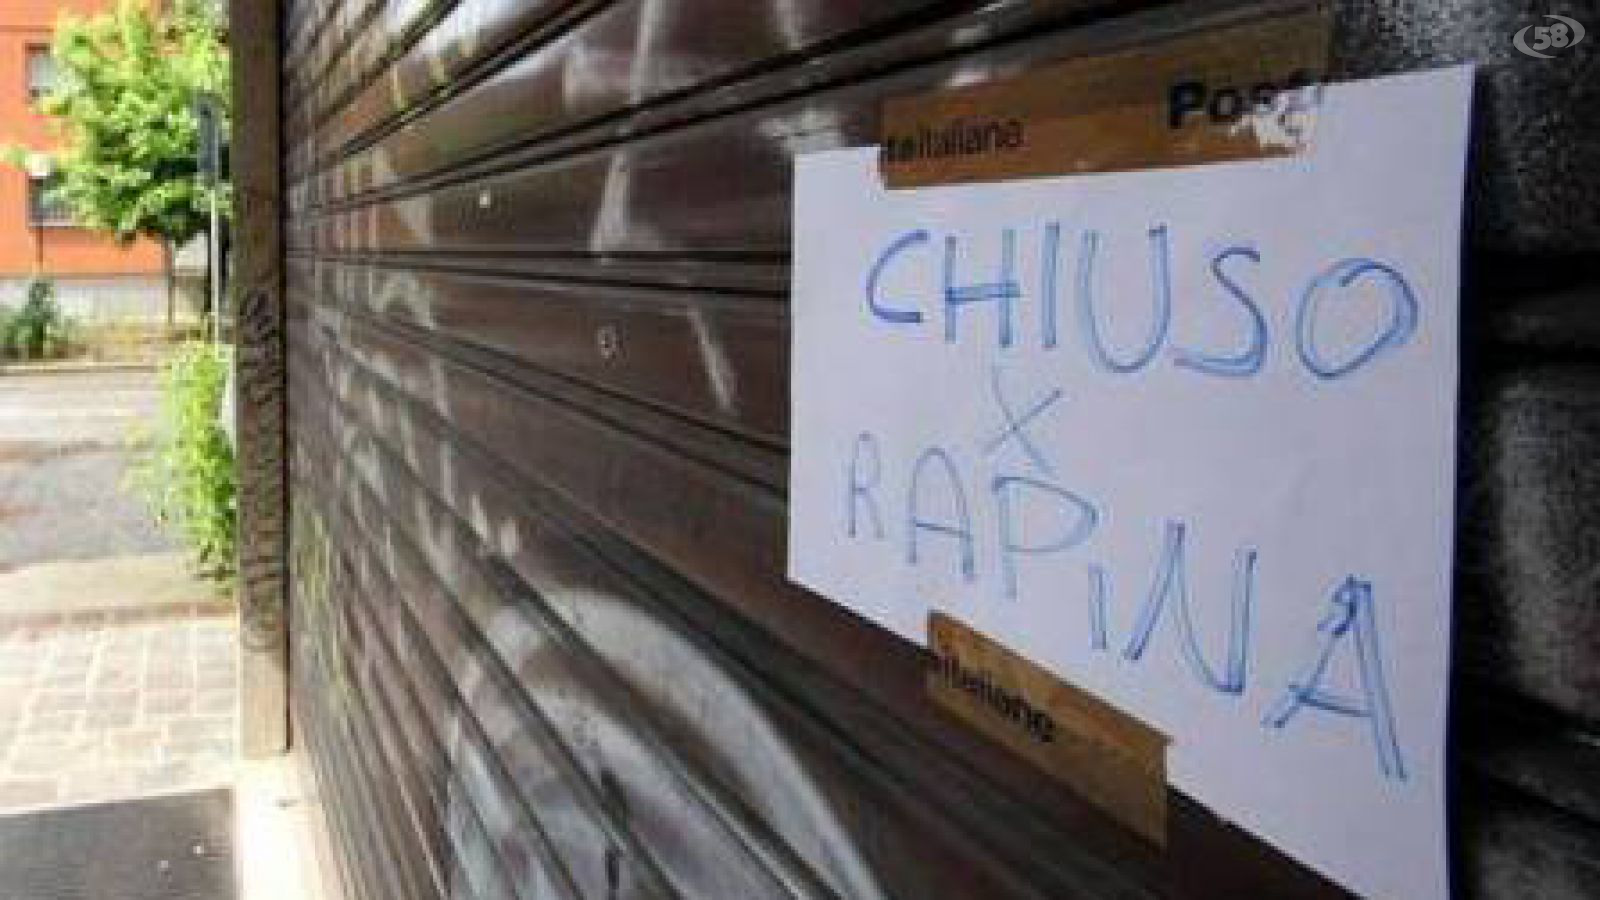 58
Post
teitaliana
CHIUSO
X
RAPINA
eitaliane